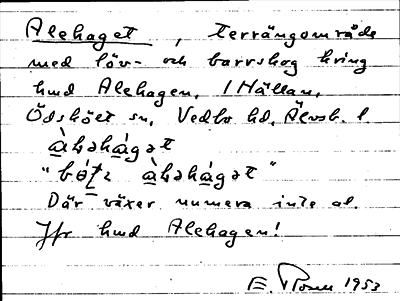 Alehaget, terrängområde
med löv- och barrskog kring
hmd Alehagen, i Hällan,
Ödskölt sn, Vedbo hd, Älvsb. l.
àləhágət
"bótɩ àləhágət"
Där växer numera inte al.
Jfr hmd Alehagen!
E. 1953